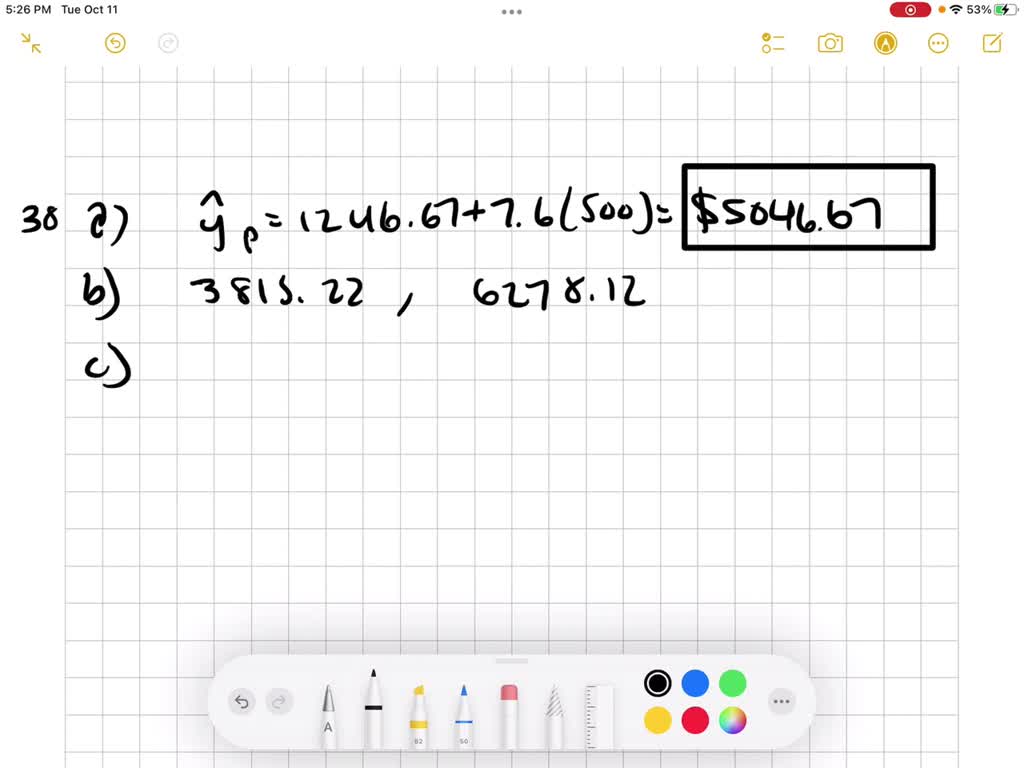 5:26 PM Tue Oct 11 53%
38 a) ŷp = 1246.67+7.6(500)= $5046.67
b) 3815.22 , 6278.12
c)
A
82
50